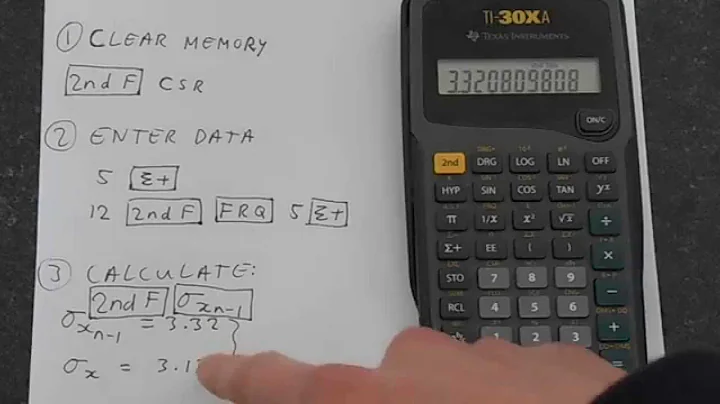 ① CLEAR MEMORY
2nd F CSR
② ENTER DATA
5 Σ+
12 2nd F FRQ 5 Σ+
③ CALCULATE:
2nd F σxn-1
σxn-1 = 3.32
σx = 3.1
TI-30XA
TEXAS INSTRUMENTS
3.320809808
ON/C
2nd DRG LOG LN OFF
HYP SIN COS TAN yx
π 1/x x² √x ÷
Σ+ EE ( ) ×
STO 7 8 9 −
RCL 4 5 6 +
1 2 3 =